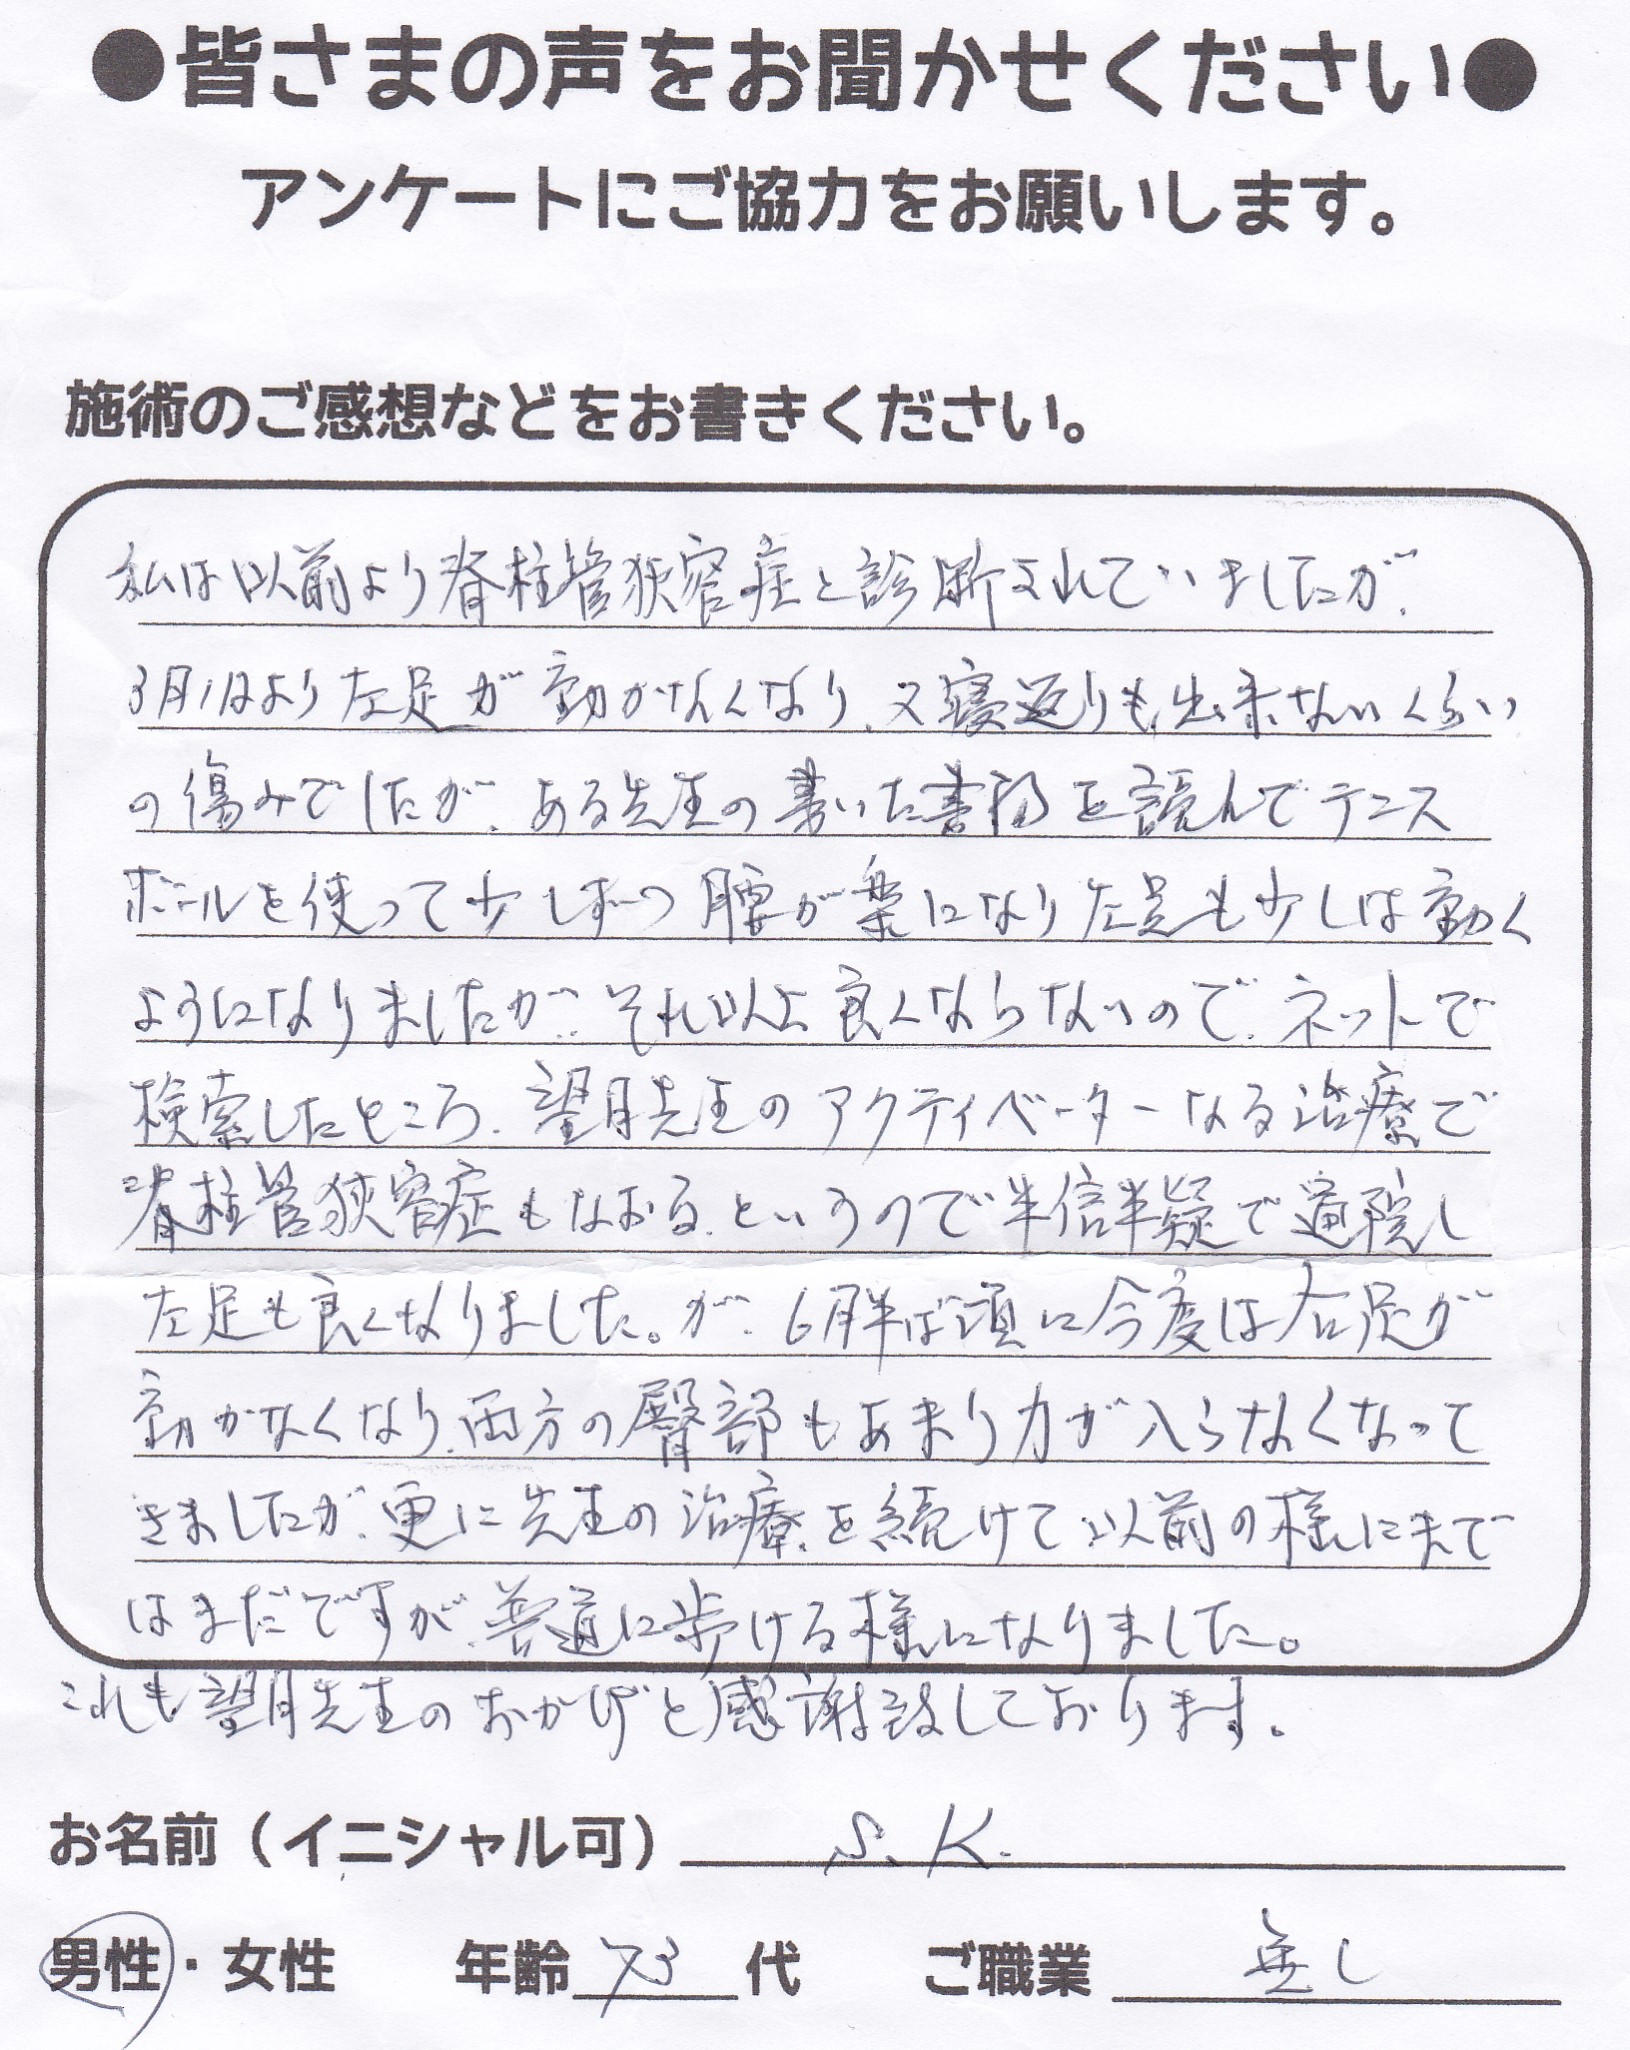 ●皆さまの声をお聞かせください●
アンケートにご協力をお願いします。
施術のご感想などをお書きください。
私は以前より脊柱管狭窄症と診断されていましたが、
3月1日より左足が動かなくなり、又寝返りも出来ないくらい
の傷みでしたが、ある先生の書いた書物を読んでテニス
ボールを使って少しずつ腰が楽になり左足も少しは動く
ようになりましたが、それ以上良くならないので、ネットで
検索したところ、望月先生のアクティベーターなる治療で
脊柱管狭窄症もなおる、というので半信半疑で通院し
左足も良くなりました。が、6月半ば頃に今度は右足が
動かなくなり、両方の臀部もあまり力が入らなくなって
きましたが、更に先生の治療を続けて、以前の様にまで
はまだですが、普通に歩ける様になりました。
これも望月先生のおかげと感謝致しております。
お名前（イニシャル可） S.K.
男性・女性 年齢 73 代 ご職業 無し